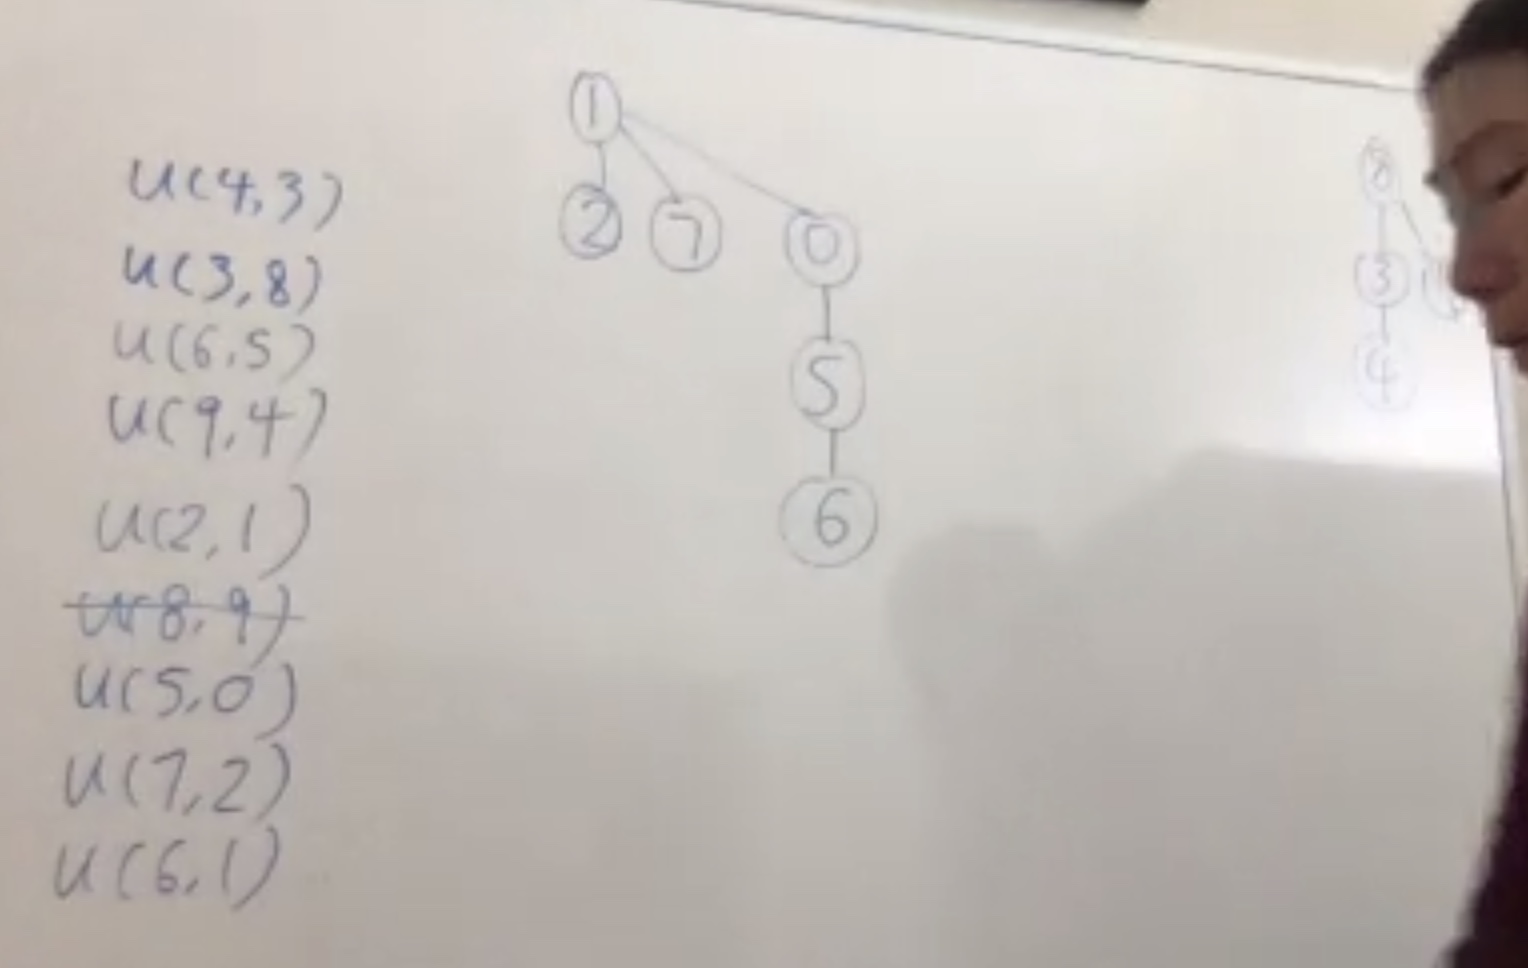 U(4,3)
U(3,8)
U(6,5)
U(9,4)
U(2,1)
U(8,9)
U(5,0)
U(7,2)
U(6,1)
1
2 7 0
5
6
8
3
4